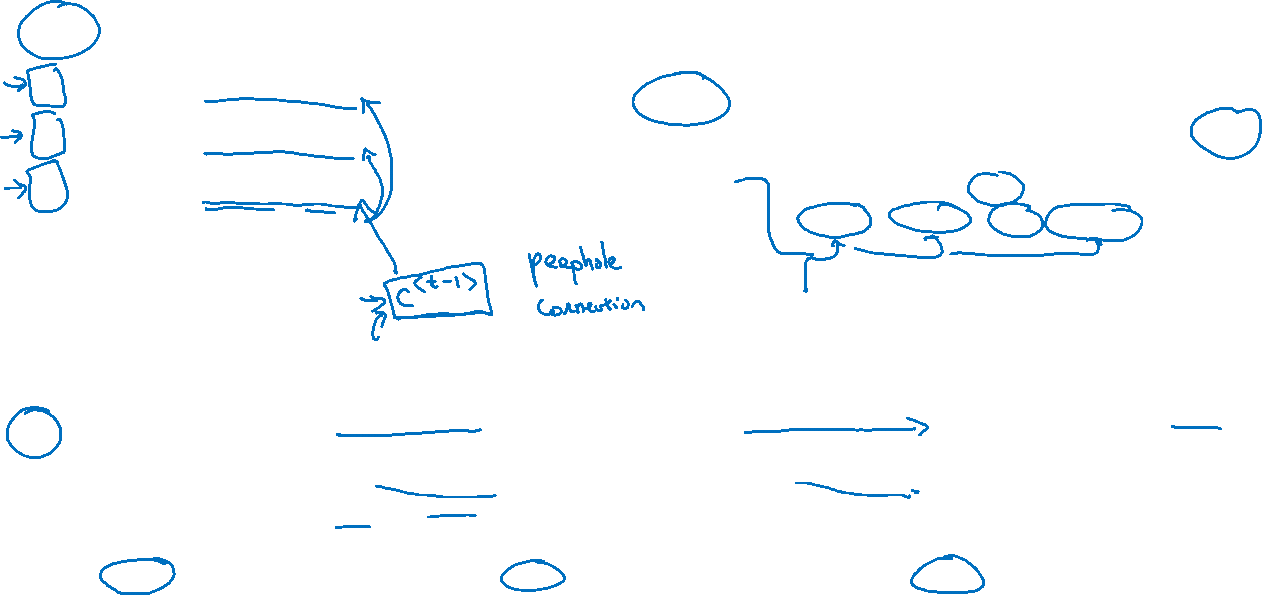 c<t-1>
peephole
connection